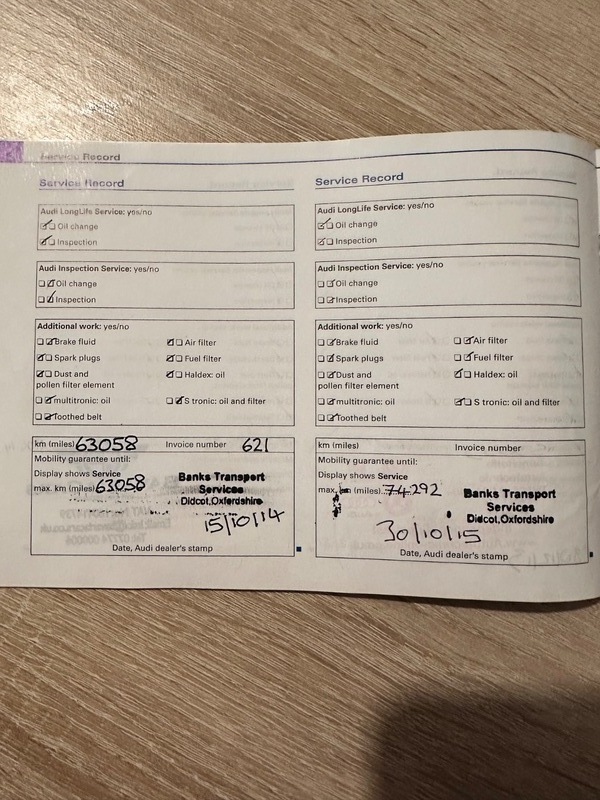 Service Record
Service Record
Audi LongLife Service: yes/no
Oil change
Inspection
Audi Inspection Service: yes/no
Oil change
Inspection
Additional work: yes/no
Brake fluid
Air filter
Spark plugs
Fuel filter
Dust and
pollen filter element
Haldex: oil
multitronic: oil
S tronic: oil and filter
Toothed belt
km (miles) 63058 Invoice number 621
Mobility guarantee until:
Display shows Service
max. km (miles) 63058
Banks Transport
Services
Didcot,Oxfordshire
15/10/14
Date, Audi dealer's stamp
Service Record
Audi LongLife Service: yes/no
Oil change
Inspection
Audi Inspection Service: yes/no
Oil change
Inspection
Additional work: yes/no
Brake fluid
Air filter
Spark plugs
Fuel filter
Dust and
pollen filter element
Haldex: oil
multitronic: oil
S tronic: oil and filter
Toothed belt
km (miles) Invoice number
Mobility guarantee until:
Display shows Service
max. km (miles) 74292
Banks Transport
Services
Didcot,Oxfordshire
30/10/15
Date, Audi dealer's stamp